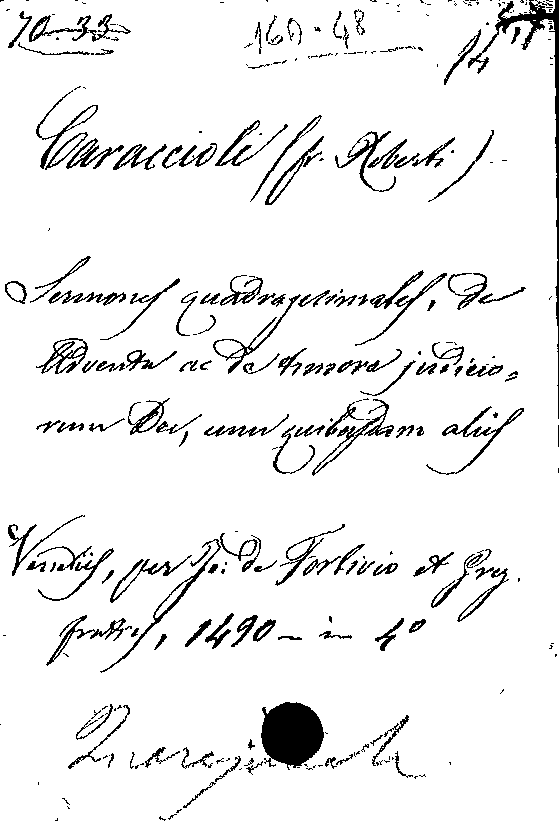 70-33
160-48
Caraccioli (fr. Roberti)
Sermones quadragesimales, de
Adventu ac de timore judicio=
rum Dei, cum quibusdam aliis
Venetiis, per Jo: de Forlivio et Greg.
fratres, 1490 — in 4º